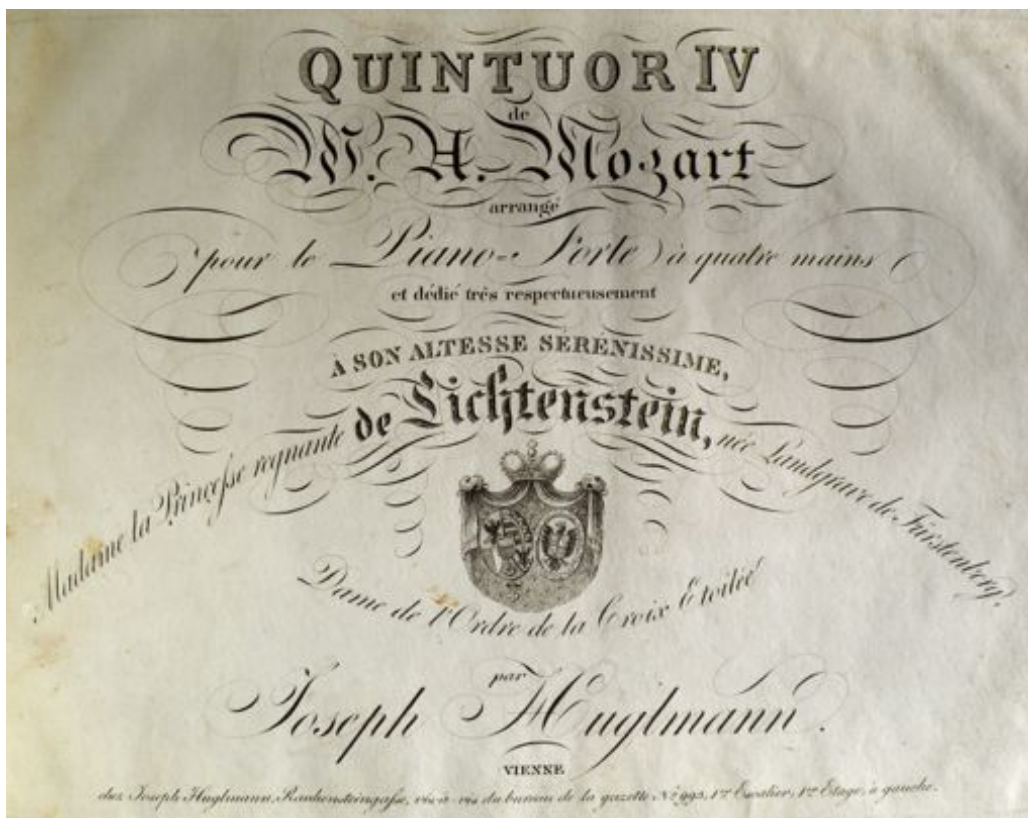 QUINTUOR IV
de
W. A. Mozart
arrangé
pour le Piano=Forte à quatre mains
et dédié trés respectueusement
À SON ALTESSE SÉRÉNISSIME,
Madame la Princesse regnante de Lichtenstein, née Landgrave de Fürstenberg,
Dame de l'Ordre de la Croix Etoilée
par
Joseph Huglmann.
VIENNE
chez Joseph Huglmann, Rauhensteingasse, vis-à-vis du bureau de la gazette No. 993, 1er Escalier, 1er Etage, à gauche.